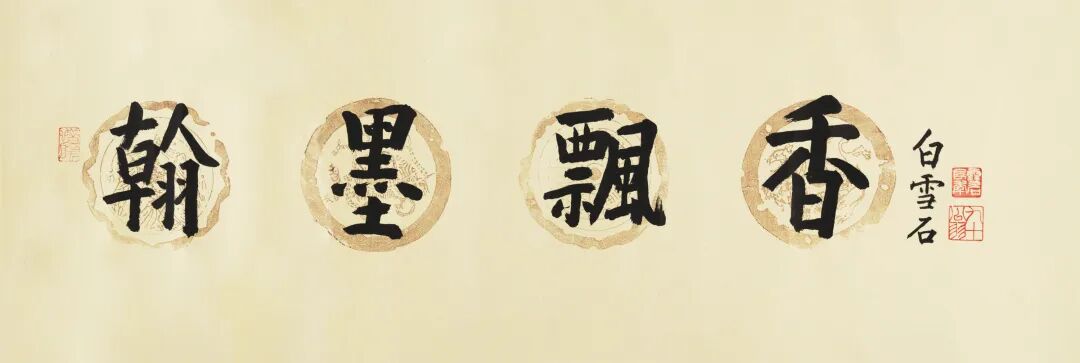 翰墨飄香
白雪石